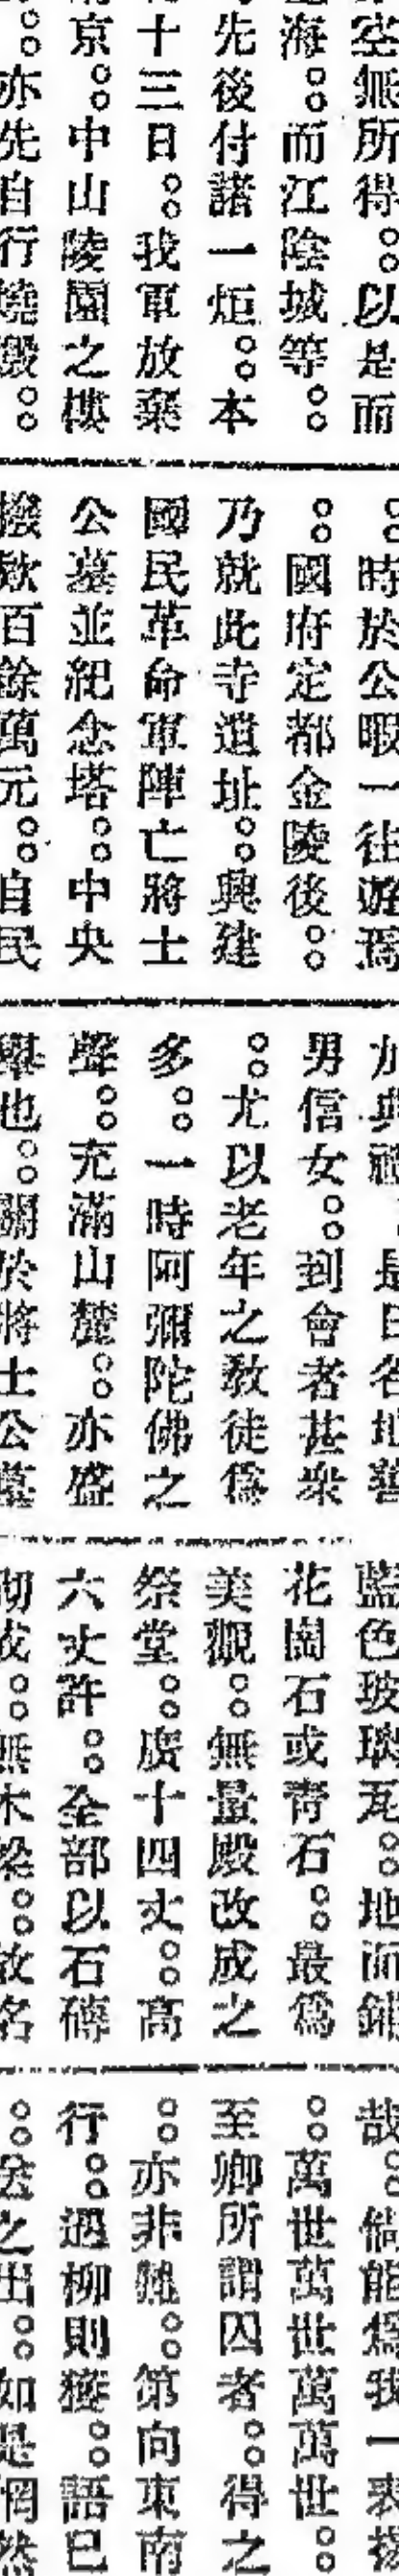 空無所得。。以是而
海。。而江陰城等。。
先後付諸一炬。。本
十三日。。我軍放棄
京。。中山陵園之樓
。。亦先自行燒毀。。
。。時於公暇一往遊焉
。。國府定都金陵後。。
乃就此寺遺址。。興建
國民革命軍陣亡將士
公墓並紀念塔。。中央
撥欵百餘萬元。。自民
是日各地善
男信女。。到會者甚衆
。。尤以老年之敎徒爲
多。。一時阿彌陀佛之
聲。。充滿山麓。。亦盛
舉也。。關於將士公墓
藍色玻璃瓦。。地面鋪
花崗石或靑石。。最爲
美觀。。無量殿改成之
祭堂。。廣十四丈。。高
六丈許。。全部以石磚
砌成。。無木梁。。故名
哉。。倘能爲我一表揚
。。萬世萬世萬萬世。。
至鄉所謂囚者。。得之
。。亦非難。。第向東南
行。。遇柳則獲。。語已
。。送之出。。如是惘然